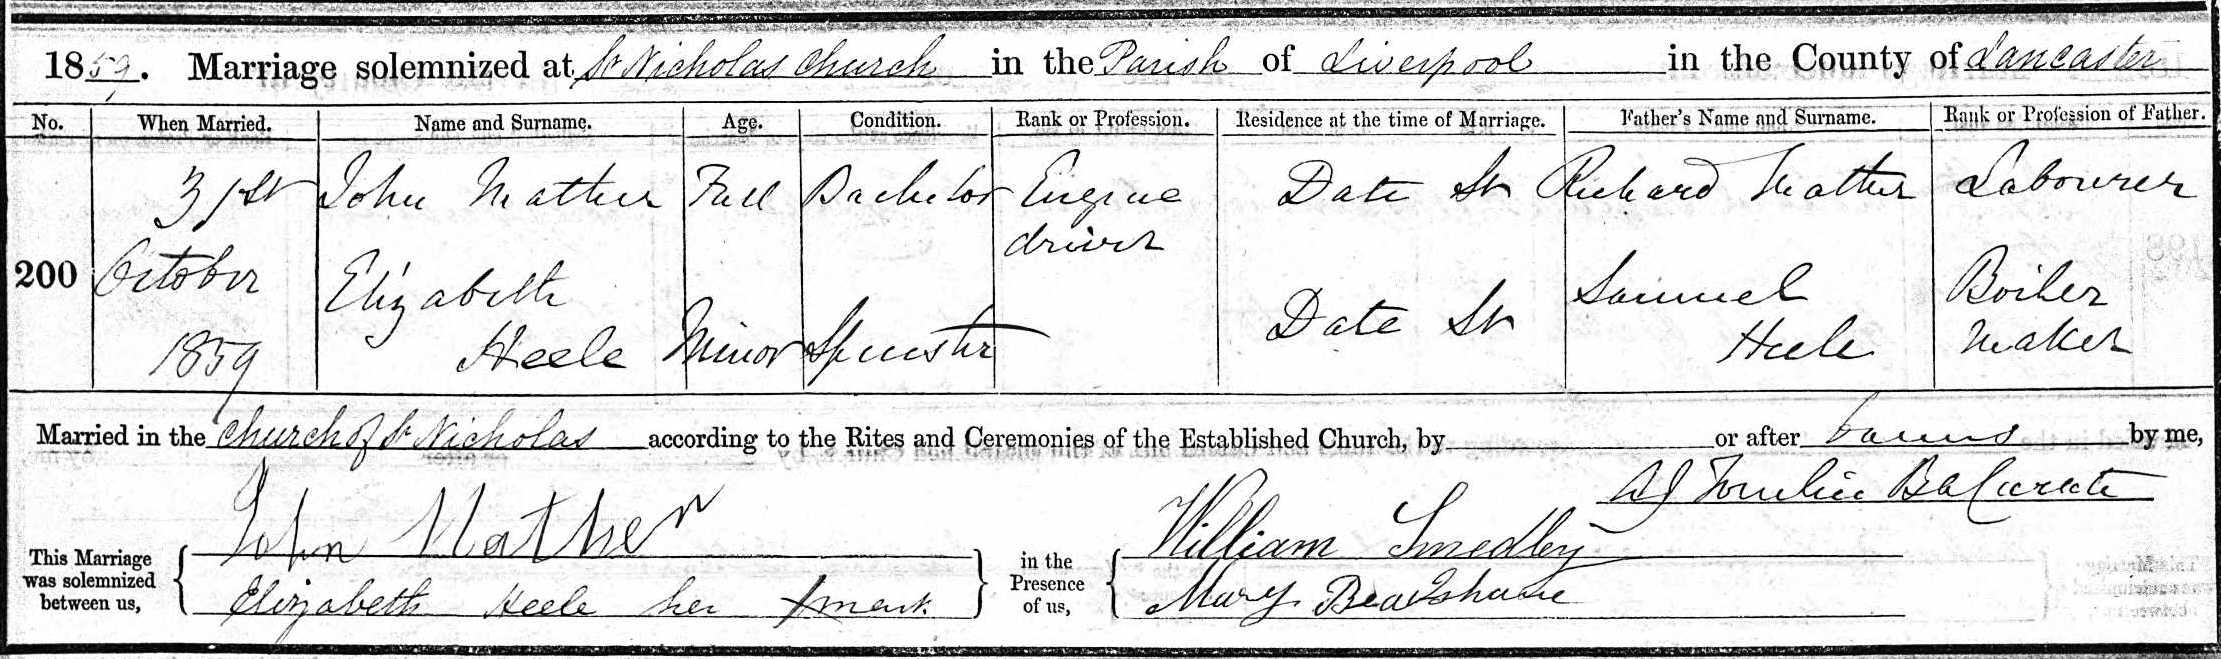 1859. Marriage solemnized at St Nicholas Church in the Parish of Liverpool in the County of Lancaster
No. When Married. Name and Surname. Age. Condition. Rank or Profession. Residence at the time of Marriage. Father's Name and Surname. Rank or Profession of Father.
200
31st
October
1859
John Mather Full Bachelor Engine
driver
Date St Richard Mather Labourer
Elizabeth
Heele
Minor Spinster Date St Samuel
Heele
Boiler
Maker
Married in the Church of St Nicholas according to the Rites and Ceremonies of the Established Church, by or after banns by me,
Tomlin BA Curate
This Marriage
was solemnized
between us,
John Mather
Elizabeth Heele her x mark
in the
Presence
of us,
William Smedley
Mary